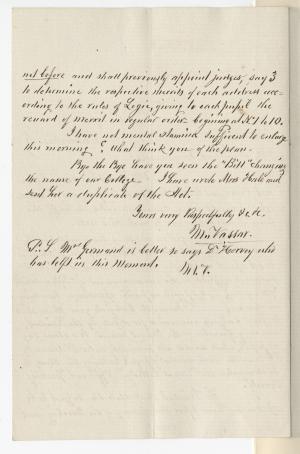 not before and shall previously appoint judges, say 3
to determine the respective merits of each address acc-
ording to the rules of Logic, giving to each pupil the
reward of merit in regular order begining at No 1 to 10.
I have not mental stamina sufficient to enlarge
this morning, What think you of the plan.
Bye the Bye have you seen the "Bill" changing
the name of our College I have wrote Miss Hale and
sent her a duplicate of the Act.
Yours very Respectfully &c &c
M. Vassar.
P.S. Mr Germand is better so says Dr Harvey who
has left us this Moment.
M.V.